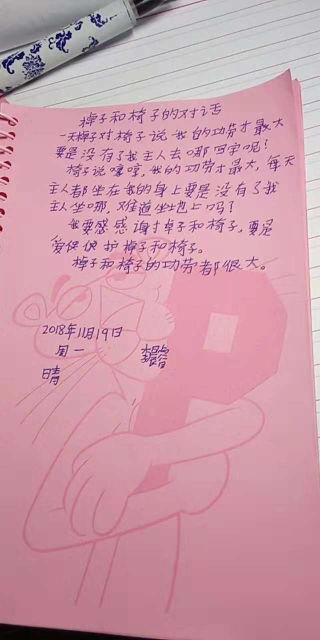 桌子和椅子的对话
一天桌子对椅子说我的功劳才最大
要是没有了我主人去哪写字呢！
椅子说嘿嘿，我的功劳才最大，每天
主人都坐在我的身上要是没有了我
主人坐哪，难道坐地上吗？
我要感感谢桌子和椅子，要是
爱保护桌子和椅子。
桌子和椅子的功劳都很大。
2018年11月19日
周一
晴